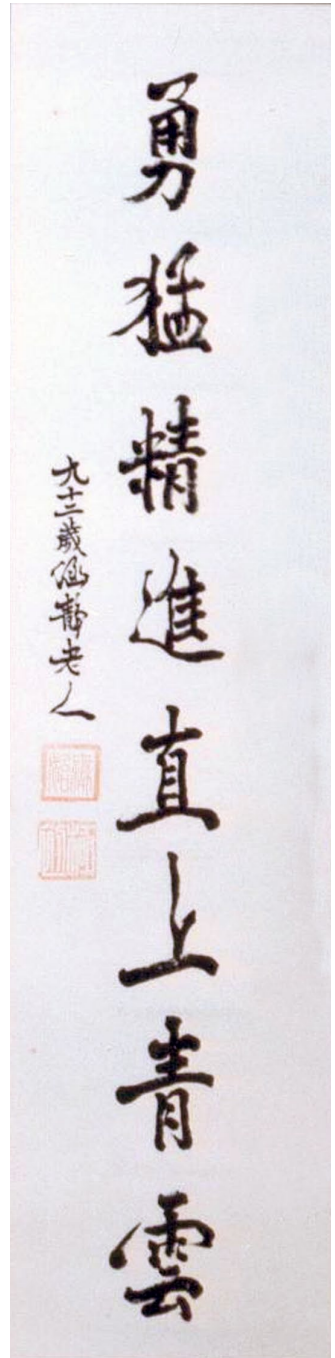 勇猛精進直上青雲
九十二歲涵靜老人